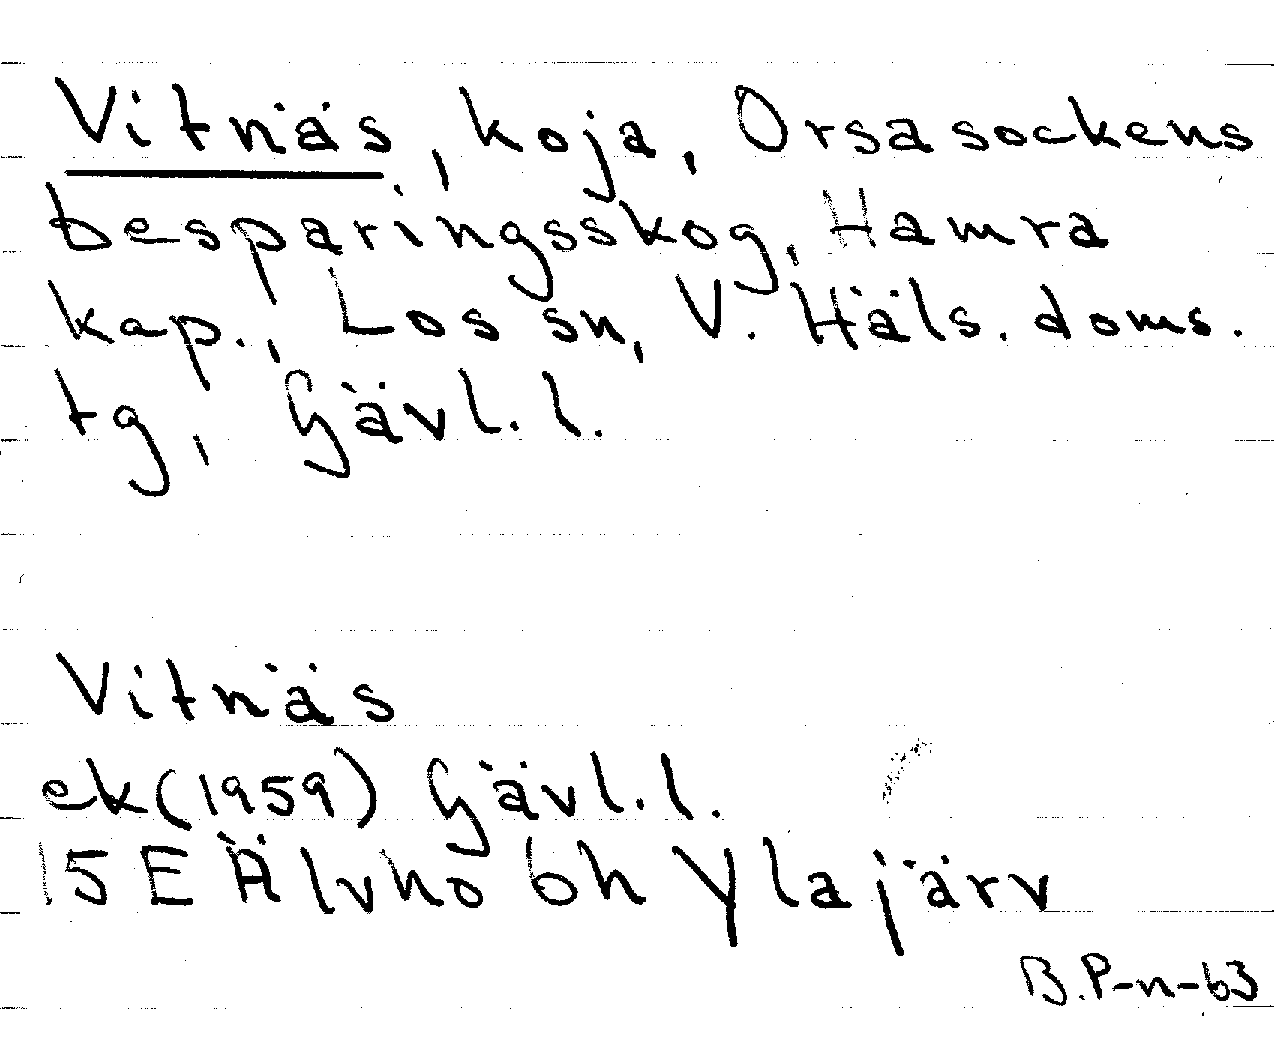 Vitnäs, koja, Orsa sockens
besparingsskog, Hamra
kap., Los sn, V. Häls. doms.
tg, Gävl. l.
Vitnäs
ek (1959) Gävl. l.
15 E Älvho 6h Ylajärv
B.P-n-63